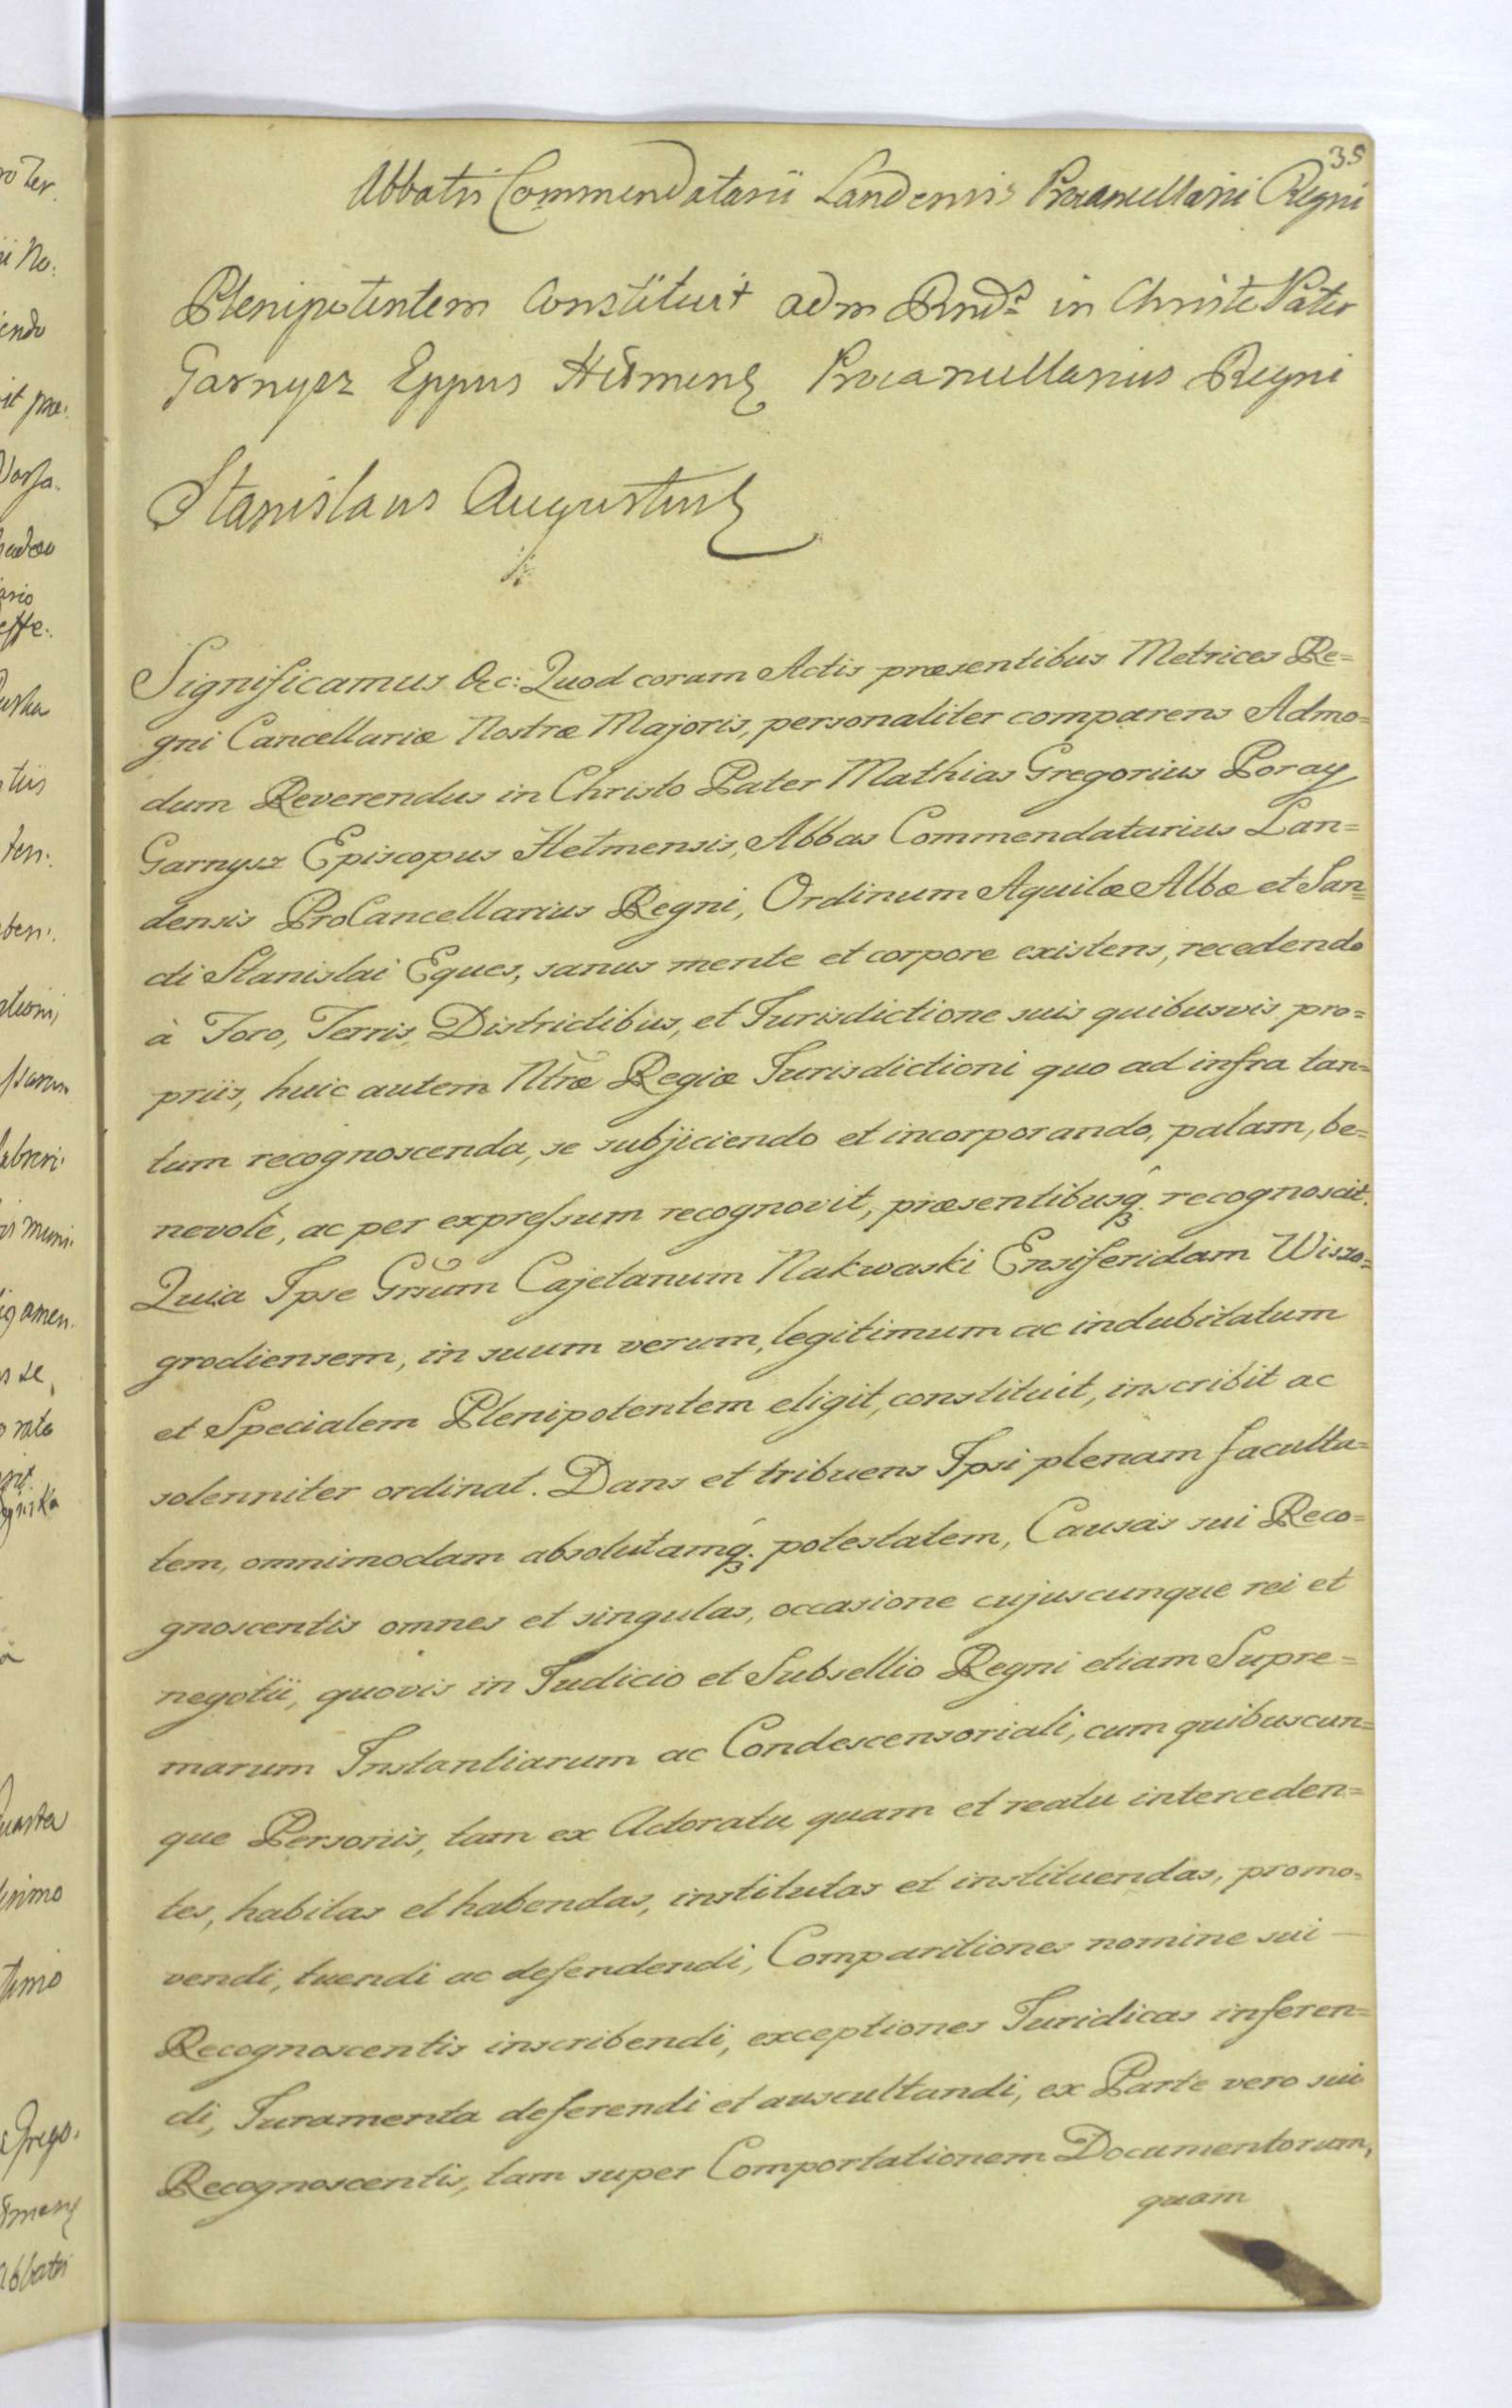 35
Abbatis Commendatarii Landensis Procancellarii Regni
Plenipotentem Constituit adm Rnds in Christo Pater
Garnysz Eppus Helmens Procancellarius Regni
Stanislaus Augustus
Significamus &c: Quod coram Actis præsentibus Metrices Re=
gni Cancellariæ Nostræ Majoris, personaliter comparens Admo=
dum Reverendus in Christo Pater Mathias Gregorius Poray
Garnysz Episcopus Helmensis, Abbas Commendatarius Lan=
densis ProCancellarius Regni, Ordinum Aquilæ Albæ et San=
cti Stanislai Eques, sanus mente et corpore existens, recedendo
à Foro, Terris, Districtibus, et Jurisdictione suis quibusvis pro=
priis, huic autem Ntræ Regiæ Jurisdictioni quo ad infra tan=
tum recognoscenda, se subjiciendo et incorporando, palam, be=
nevole, ac per expressum recognovit, præsentibusq́ꝫ recognoscit.
Quia Ipse Grsum Cajetanum Nakwaski Ensiferidam Wiszo=
grodiensem, in suum verum, legitimum ac indubitatum
et Specialem Plenipotentem eligit, constituit, inscribit ac
solenniter ordinat. Dans et tribuens Ipsi plenam faculta=
tem, omnimodam absolutamq́ꝫ potestatem, Causas sui Reco=
gnoscentis omnes et singulas, occasione cujuscunque rei et
negotii, quovis in Judicio et Subsellio Regni etiam Supre=
marum Instantiarum ac Condescensoriali, cum quibuscun=
que Personis, tam ex Actoratu quam et reatu interceden=
tes, habitas et habendas, institutas et instituendas, promo=
vendi, tuendi ac defendendi, Comparitiones nomine sui
Recognoscentis inscribendi, exceptiones Juridicas inferen=
di, Juramenta deferendi et auscultandi, ex Parte vero sui
Recognoscentis, tam super Comportationem Documentorum,
quam